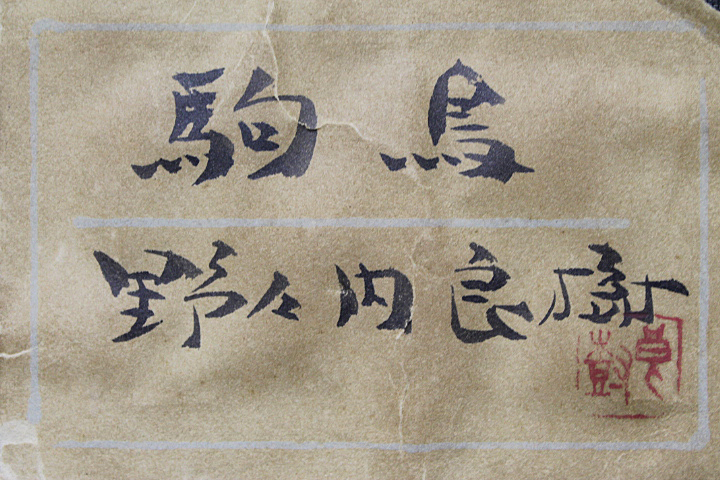 駒鳥
野々内良樹